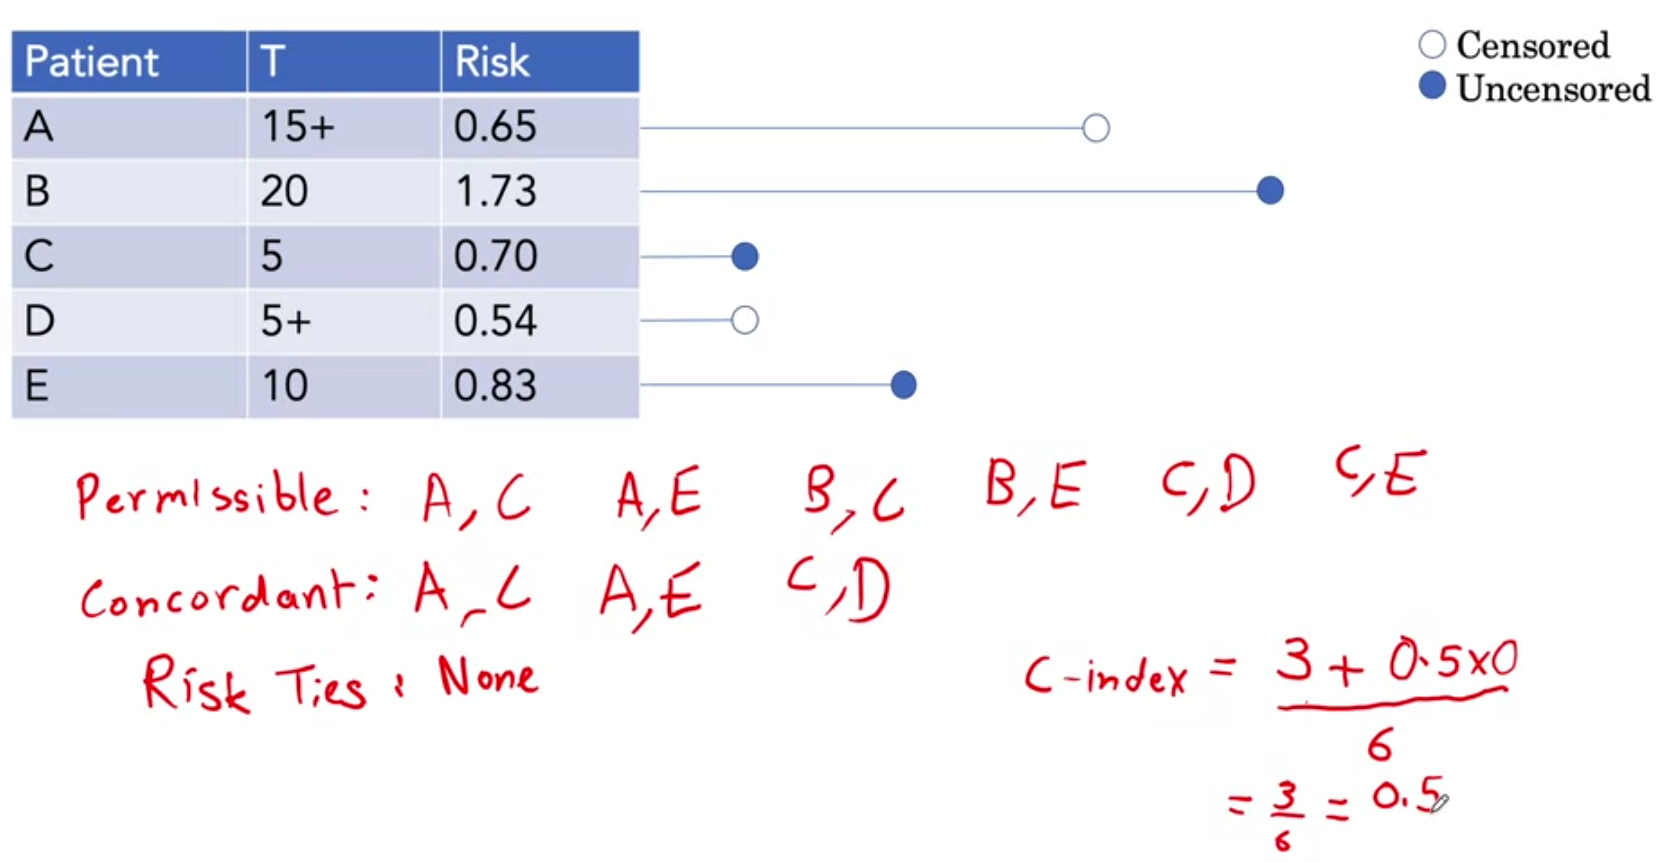 Patient T Risk
A 15+ 0.65
B 20 1.73
C 5 0.70
D 5+ 0.54
E 10 0.83
Censored
Uncensored
Permissible: A, C A,E B,C B,E C,D C,E
Concordant: A,C A,E C,D
Risk Ties: None
C-index = 3 + 0.5x0
6
= 3 = 0.5
6